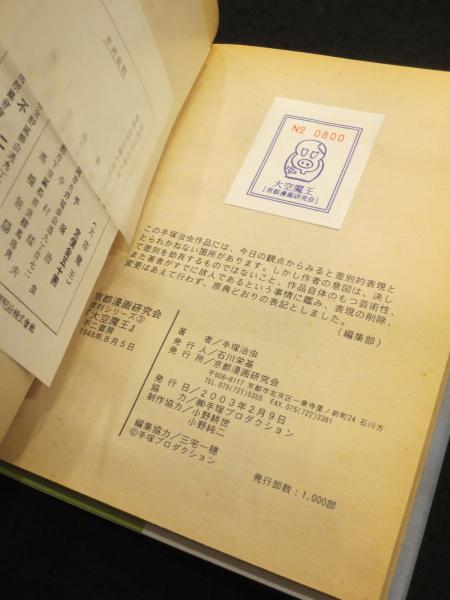 № 0800
大空魔王
[京都漫画研究会]
この手塚治虫作品には、今日の観点からみると差別的表現と
とられかねない箇所があります。しかし作者の意図は、決し
て差別を助長するものではないこと、作品自体のもつ芸術性、
また著者がすでに故人であるという事情に鑑み、表現の削除、
変更はあえて行わず、原典どおりの表記としました。
(編集部)
京都漫画研究会
復刻シリーズ③
『大空魔王』
不二書房
1948年8月5日
著者/手塚治虫
発行人/石川栄基
発行所/京都漫画研究会
〒606-8117 京都市左京区一乗寺里ノ前町24 石川方
TEL.075(721)5355 FAX.075(722)3381
発行日/2003年2月9日
協力/㈱手塚プロダクション
制作協力/小野耕世
小野純二
編集協力/三宅一穂
©手塚プロダクション
発行部数:1,000部